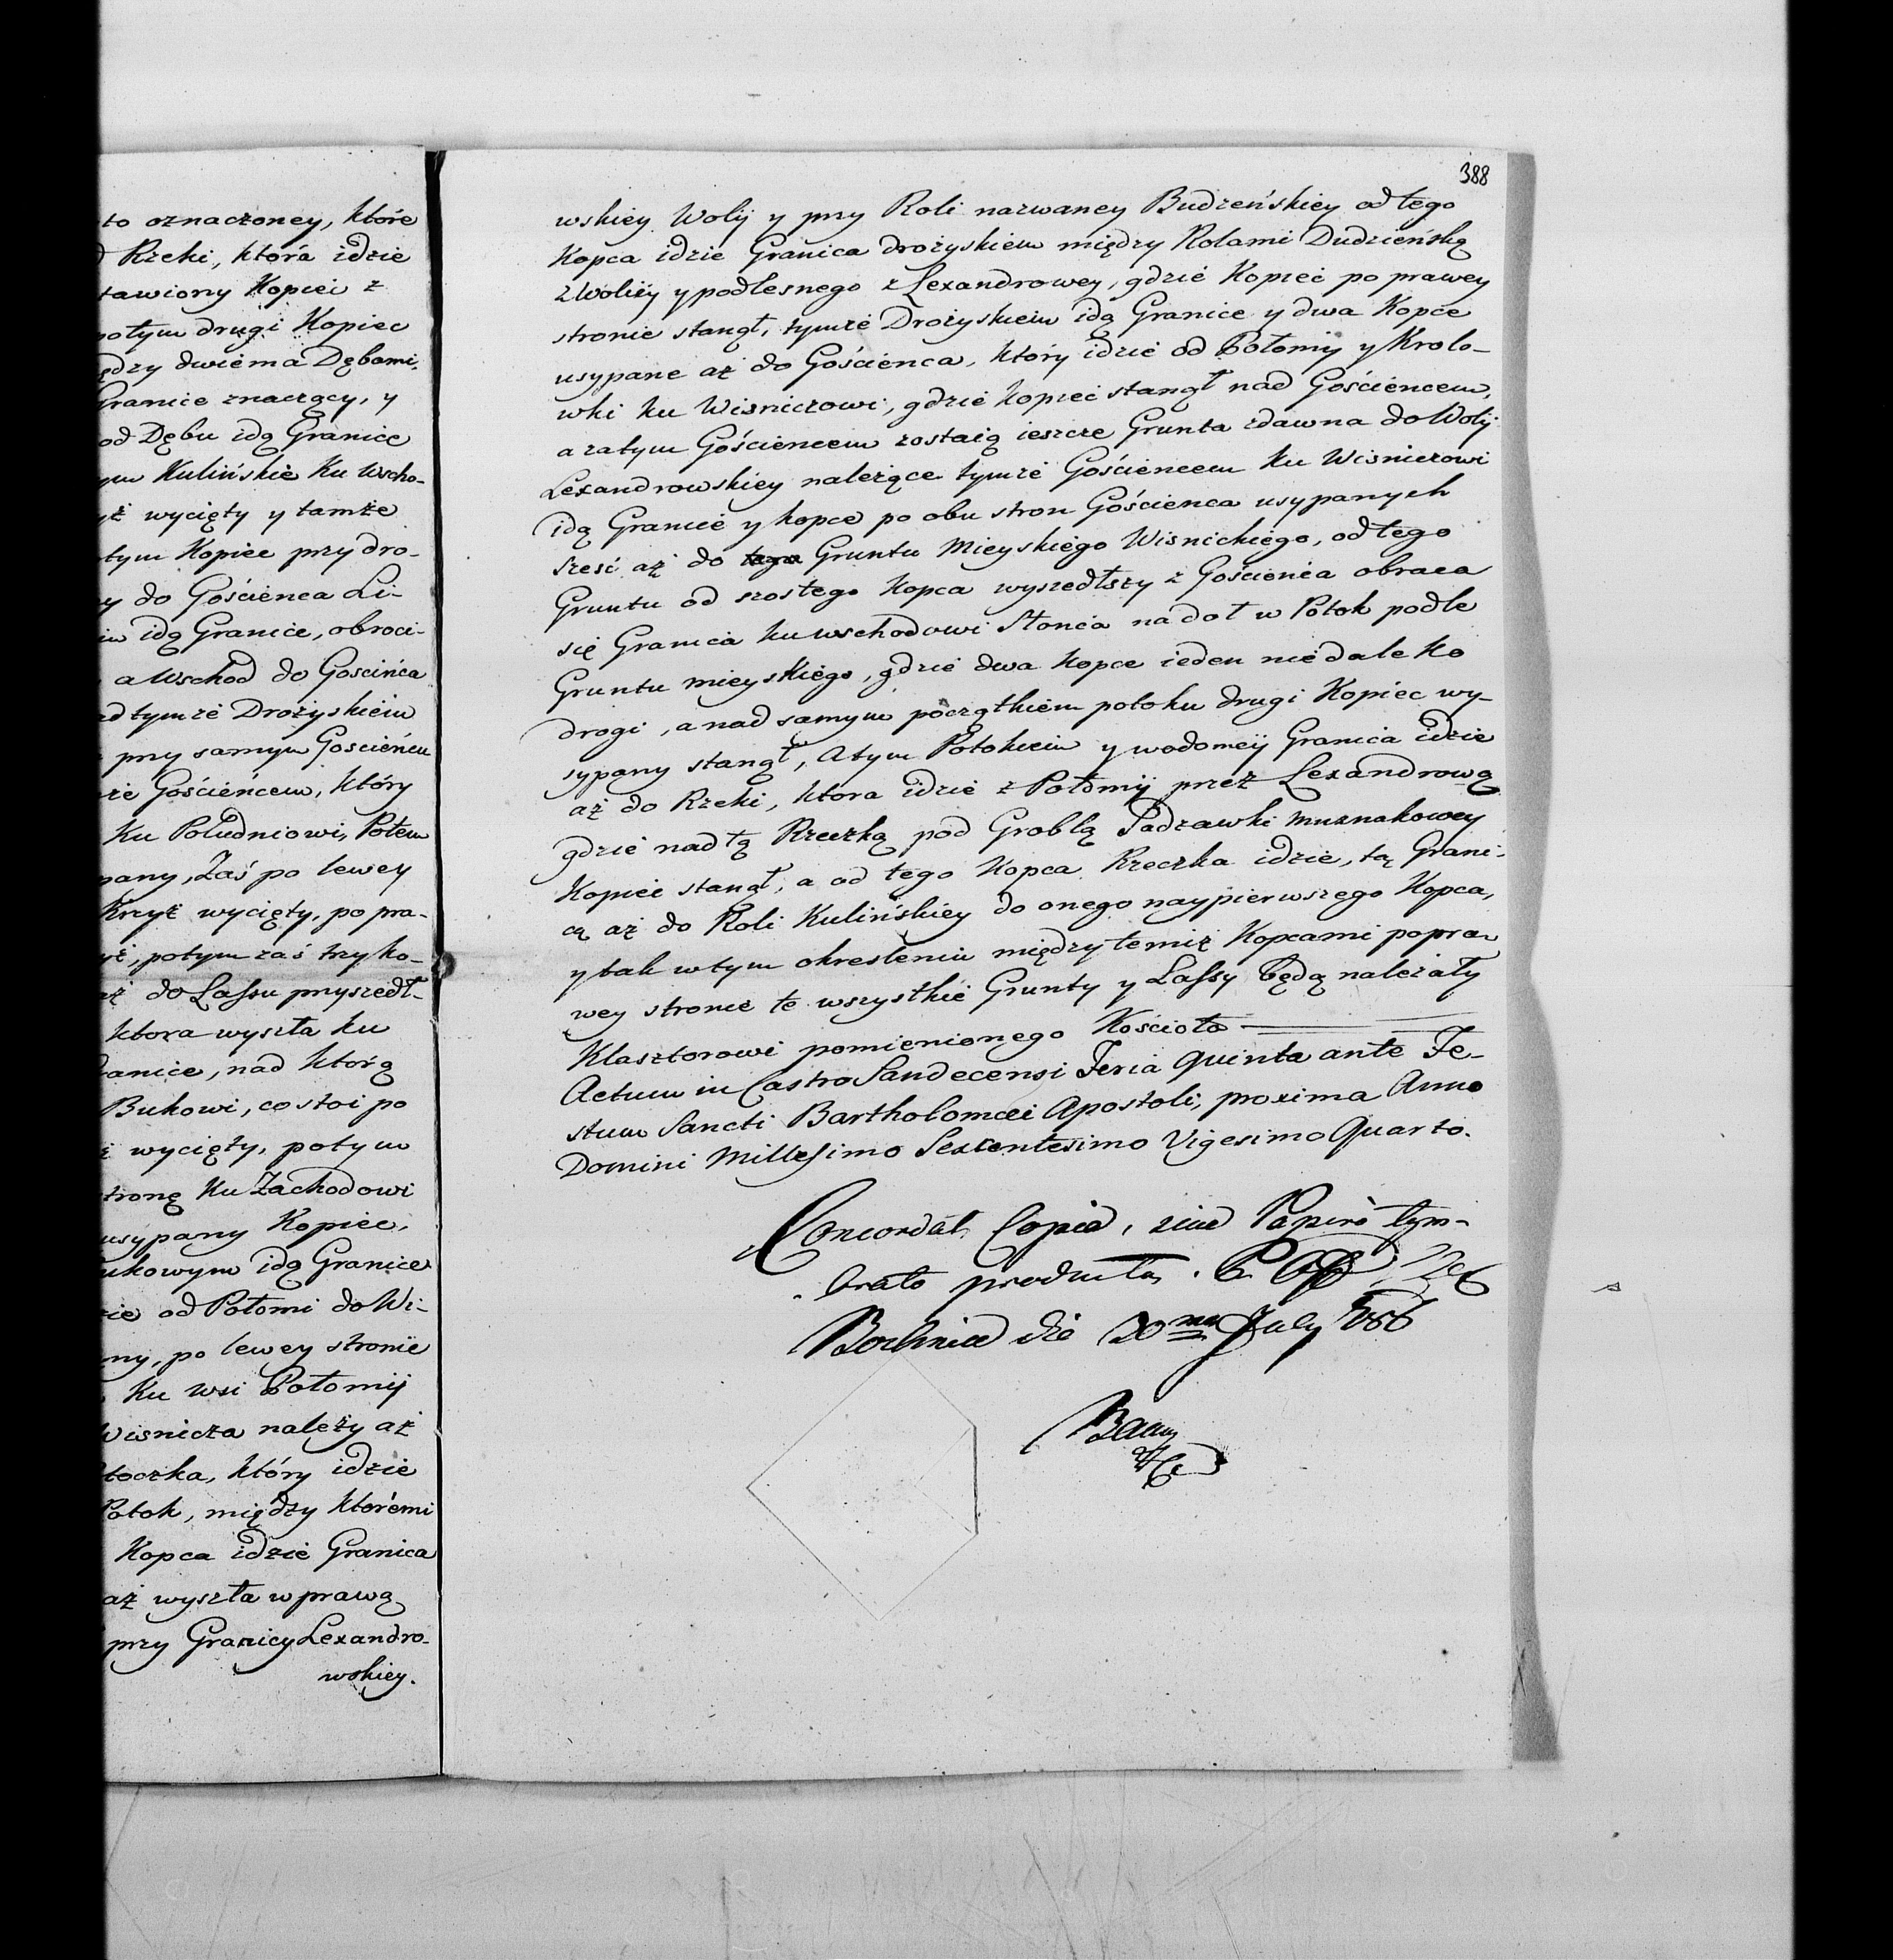 to oznaczoney, które
Rzeki, która idzie
tawiony Kopiec z
potym drugi Kopiec
ędzy dwiema Dębami,
Granice znaczący, y
od Dębu idą Granice
ym Kulińskie Ku Wscho-
yż wycięty y tamże
tym Kopiec przy dro-
y do Gościenca Li-
idą Granice, obroci-
a Wschod do Goscińca
d tymże Drożyskiem
przy samym Gościeńcu
że Gościéńcem, który
Ku Południowi, Potem
pany, Zaś po lewey
Krzyż wycięty, po pra-
yż, potym zaś trzy ko-
aż do Lassu przyszedł-
ktora wyszła ku
Granice, nad którą
Bukowi, co stoi po
ż wycięty, potym
tronę Ku Zachodowi
usypany Kopiec,
ukowym idą Granice
zie od Połomi do Wi-
ny, po lewey stronie
Ku wsi Połomij
Wisnicza należy aż
toczka, który idzie
Potok, między któremi
Kopca idzie Granica
aż wyszła w prawą
przy Granicy Lexandro-
wskiey.
388
wskiey Wolij y przy Roli nazwaney Budzeńskiey od tego
Kopca idzie Granica drożyskiem między Rolami Dudzieńską
z Woliiy y podlesnego z Lexandrowey, gdzie Kopiec po prawey
stronie stanął, tymże Drożyskiem idą Granice y dwa Kopce
usypane aż do Gościenca, który idzie od Połomij y Krolo-
wki ku Wiśniczowi, gdzie kopiec stanął nad Gościencem,
a zatym Gościencem zostaią ieszcze Grunta zdawna do Wolij
Lexandrowskiey należące tymże Gościencem ku Wisniczowi
idą Granice y kopce po obu stron Gościenca usypanych
sześć aż do tego Gruntu Mieyskiego Wisnickiego, od tego
Gruntu od szostego Kopca wyszedłszy z Gościenca obraca
się Granica ku wschodowi Słonca na doł w Potok podle
Gruntu mieyskiego, gdzie dwa kopce ieden niedaleko
drogi, a nad samym początkiem potoku drugi Kopiec wy-
sypany stanął, a tym Potokiem y wodomeij Granica idzie
aż do Rzeki, ktora idzie z Połomij przez Lexandrową
gdzie nad tą Rzeczką pod Groblą Sadzawki muznakowey
Kopiec stanął, a od tego Kopca Rzeczka idzie, tą Grani-
cą aż do Roli Kulińskiey do onego naypierwszego Kopca,
y tak w tym okresleniu między temiż Kopcami po pra-
wey stronie te wszystkie Grunty y Lassy będą należały
Klasztorowi pomienionego Kościoła
Actum in Castro Sandecensi Feria quinta ante Fe-
stum Sancti Bartholomæi Apostoli, proxima Anno
Domini Millesimo Sexcentesimo Vigesimo Quarto.
Concordat Copia, sine Papiro tym-
brato producta.
Bochnia die 20ma July 786